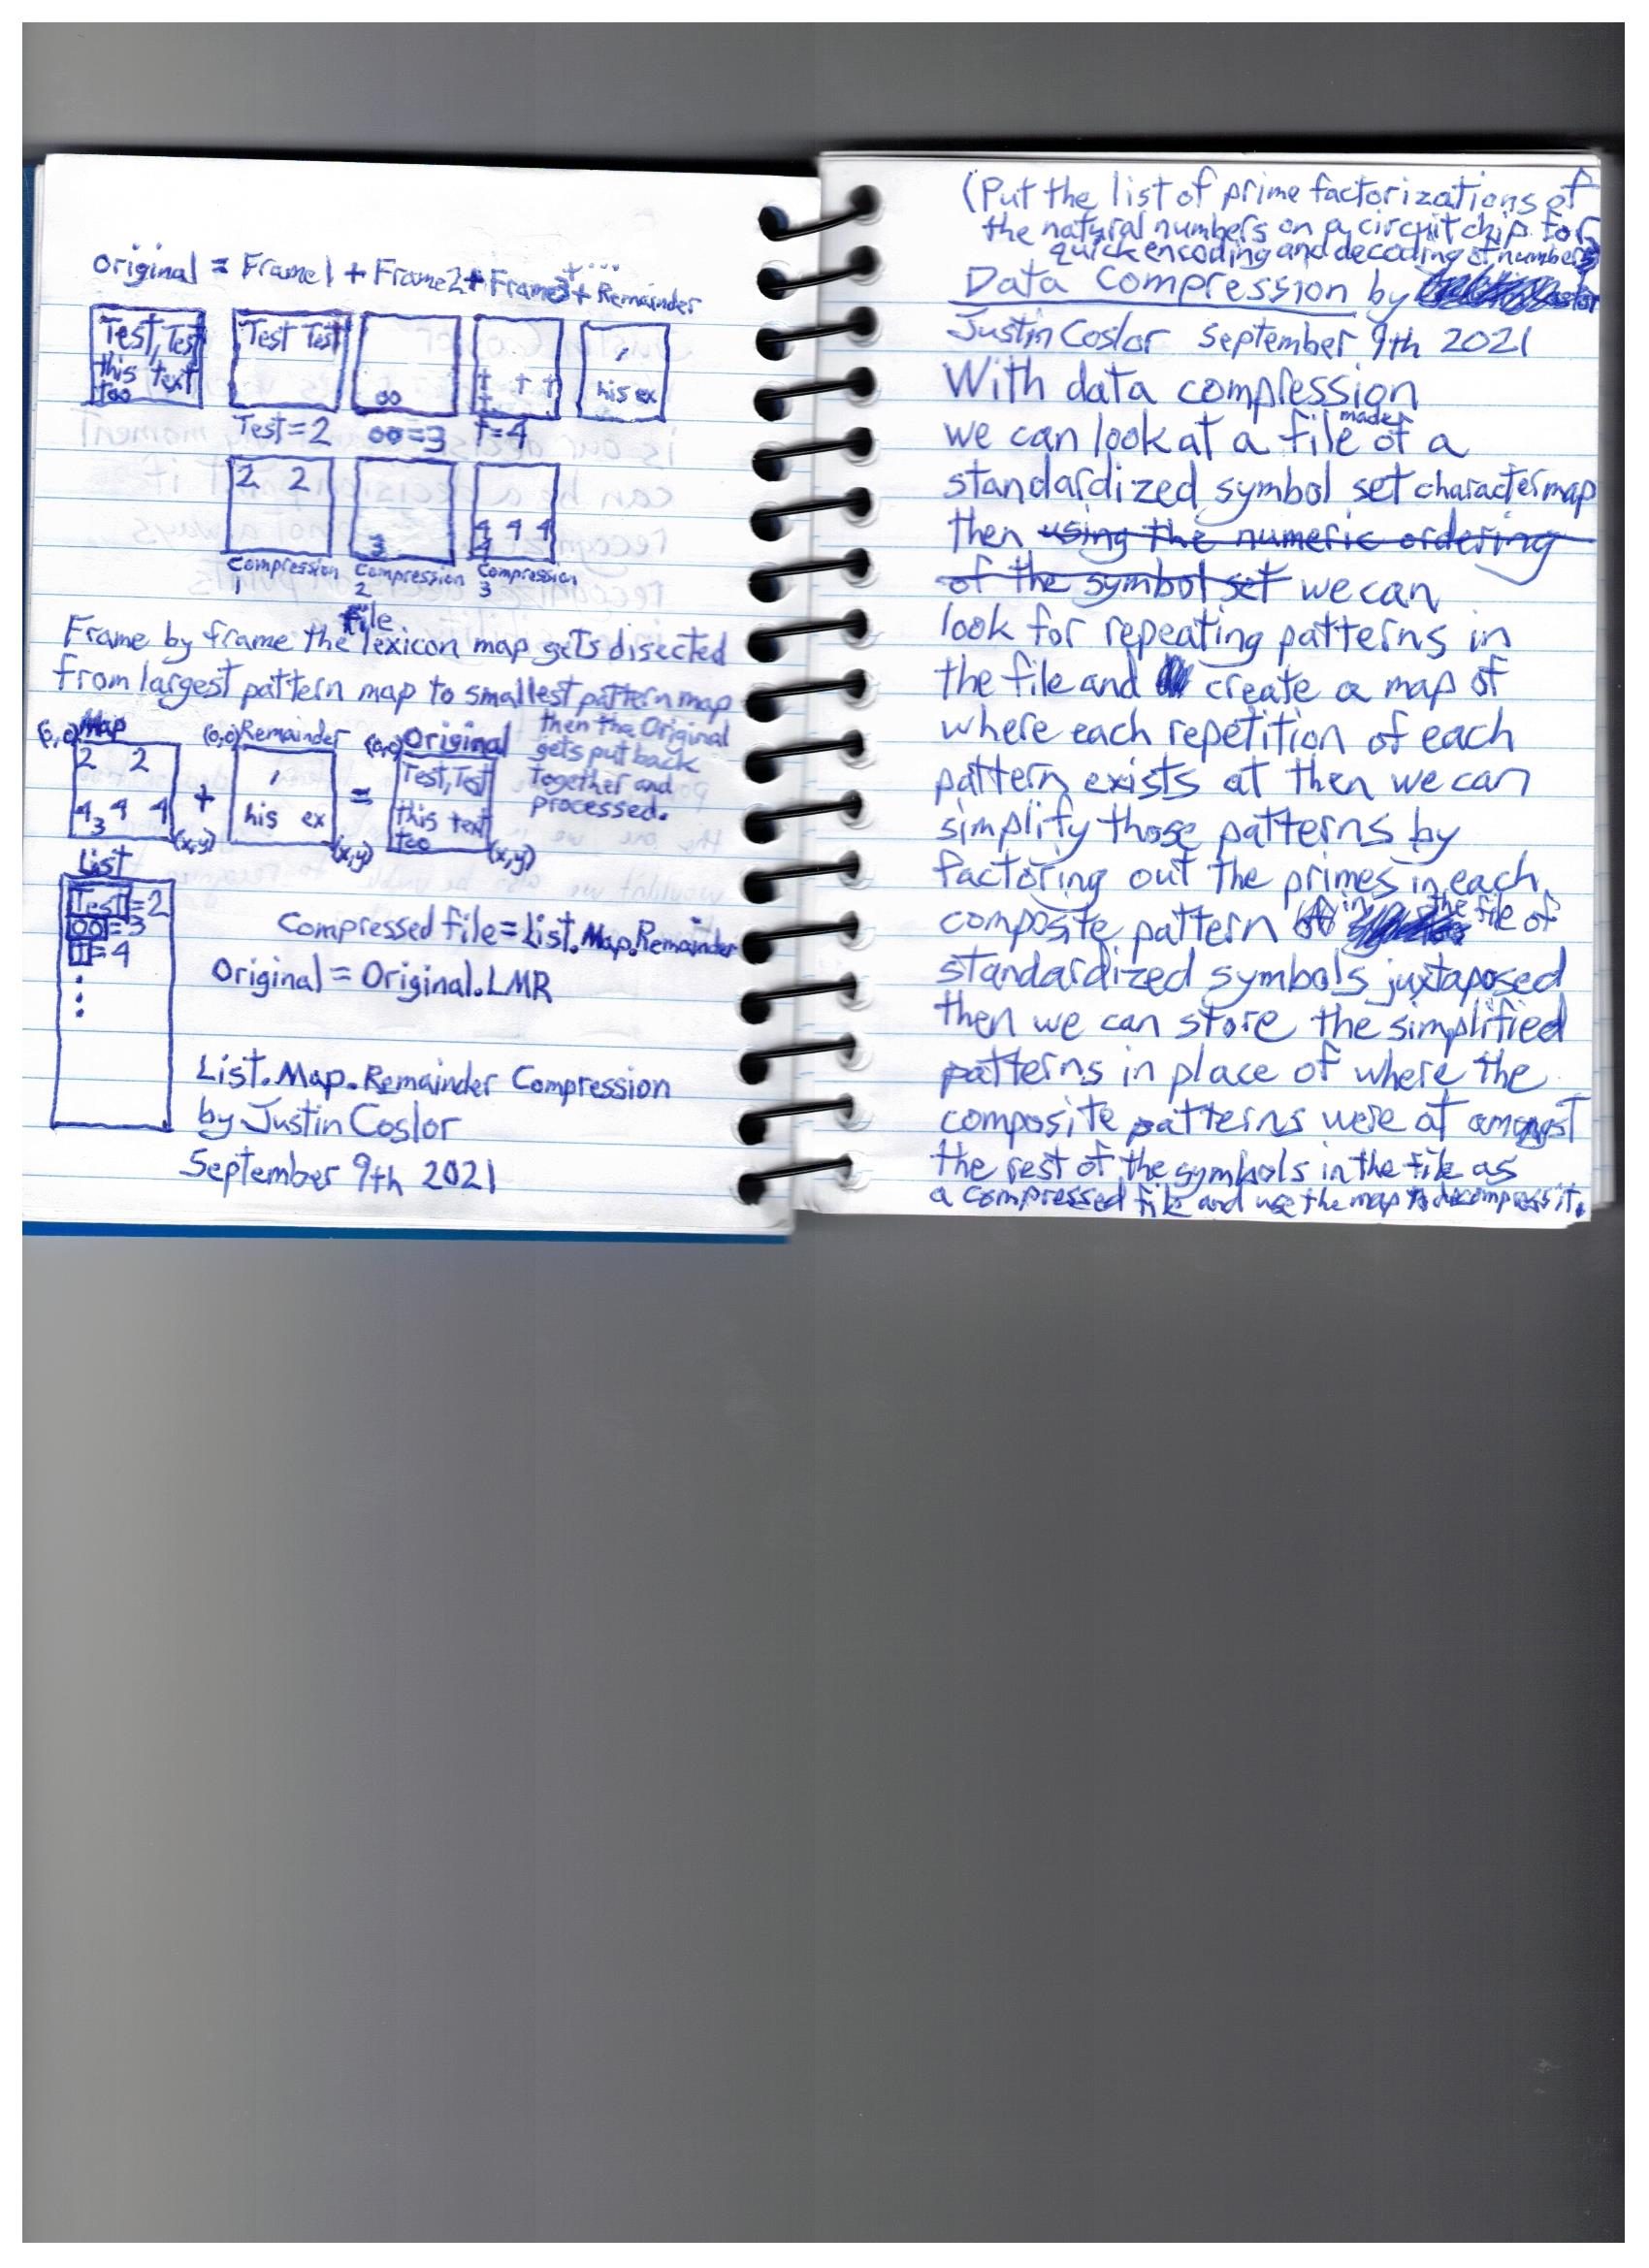 Original = Frame1 + Frame2 + Frame3 + ... + Remainder
Test, Test
this text
too
Test Test
oo
t t t
t
,
his ex
Test=2 oo=3 t=4
2 2
3
4 4 4
4
Compression 1
Compression 2
Compression 3
Frame by frame the file lexicon map gets disected
from largest pattern map to smallest pattern map
then the Original
gets put back
together and
processed.
(0,0) Map
2 2
4 4 4
3
(x,y)
+
(0,0) Remainder
,
his ex
(x,y)
=
(0,0) Original
Test, Test
this text
too
(x,y)
List
Test=2
oo=3
t=4
Compressed file = List.Map.Remainder
Original = Original.LMR
List.Map.Remainder Compression
by Justin Coslor
September 9th 2021
(Put the list of prime factorizations of
the natural numbers on a circuit chip for
quick encoding and decoding of numbers
Data Compression by
Justin Coslor September 9th 2021
With data compression
we can look at a file made of a
standardized symbol set character map
then using the numeric ordering
of the symbol set we can
look for repeating patterns in
the file and create a map of
where each repetition of each
pattern exists at then we can
simplify those patterns by
factoring out the primes in each
composite pattern in the file of
standardized symbols juxtaposed
then we can store the simplified
patterns in place of where the
composite patterns were at amongst
the rest of the symbols in the file as
a compressed file and use the map to decompress it.